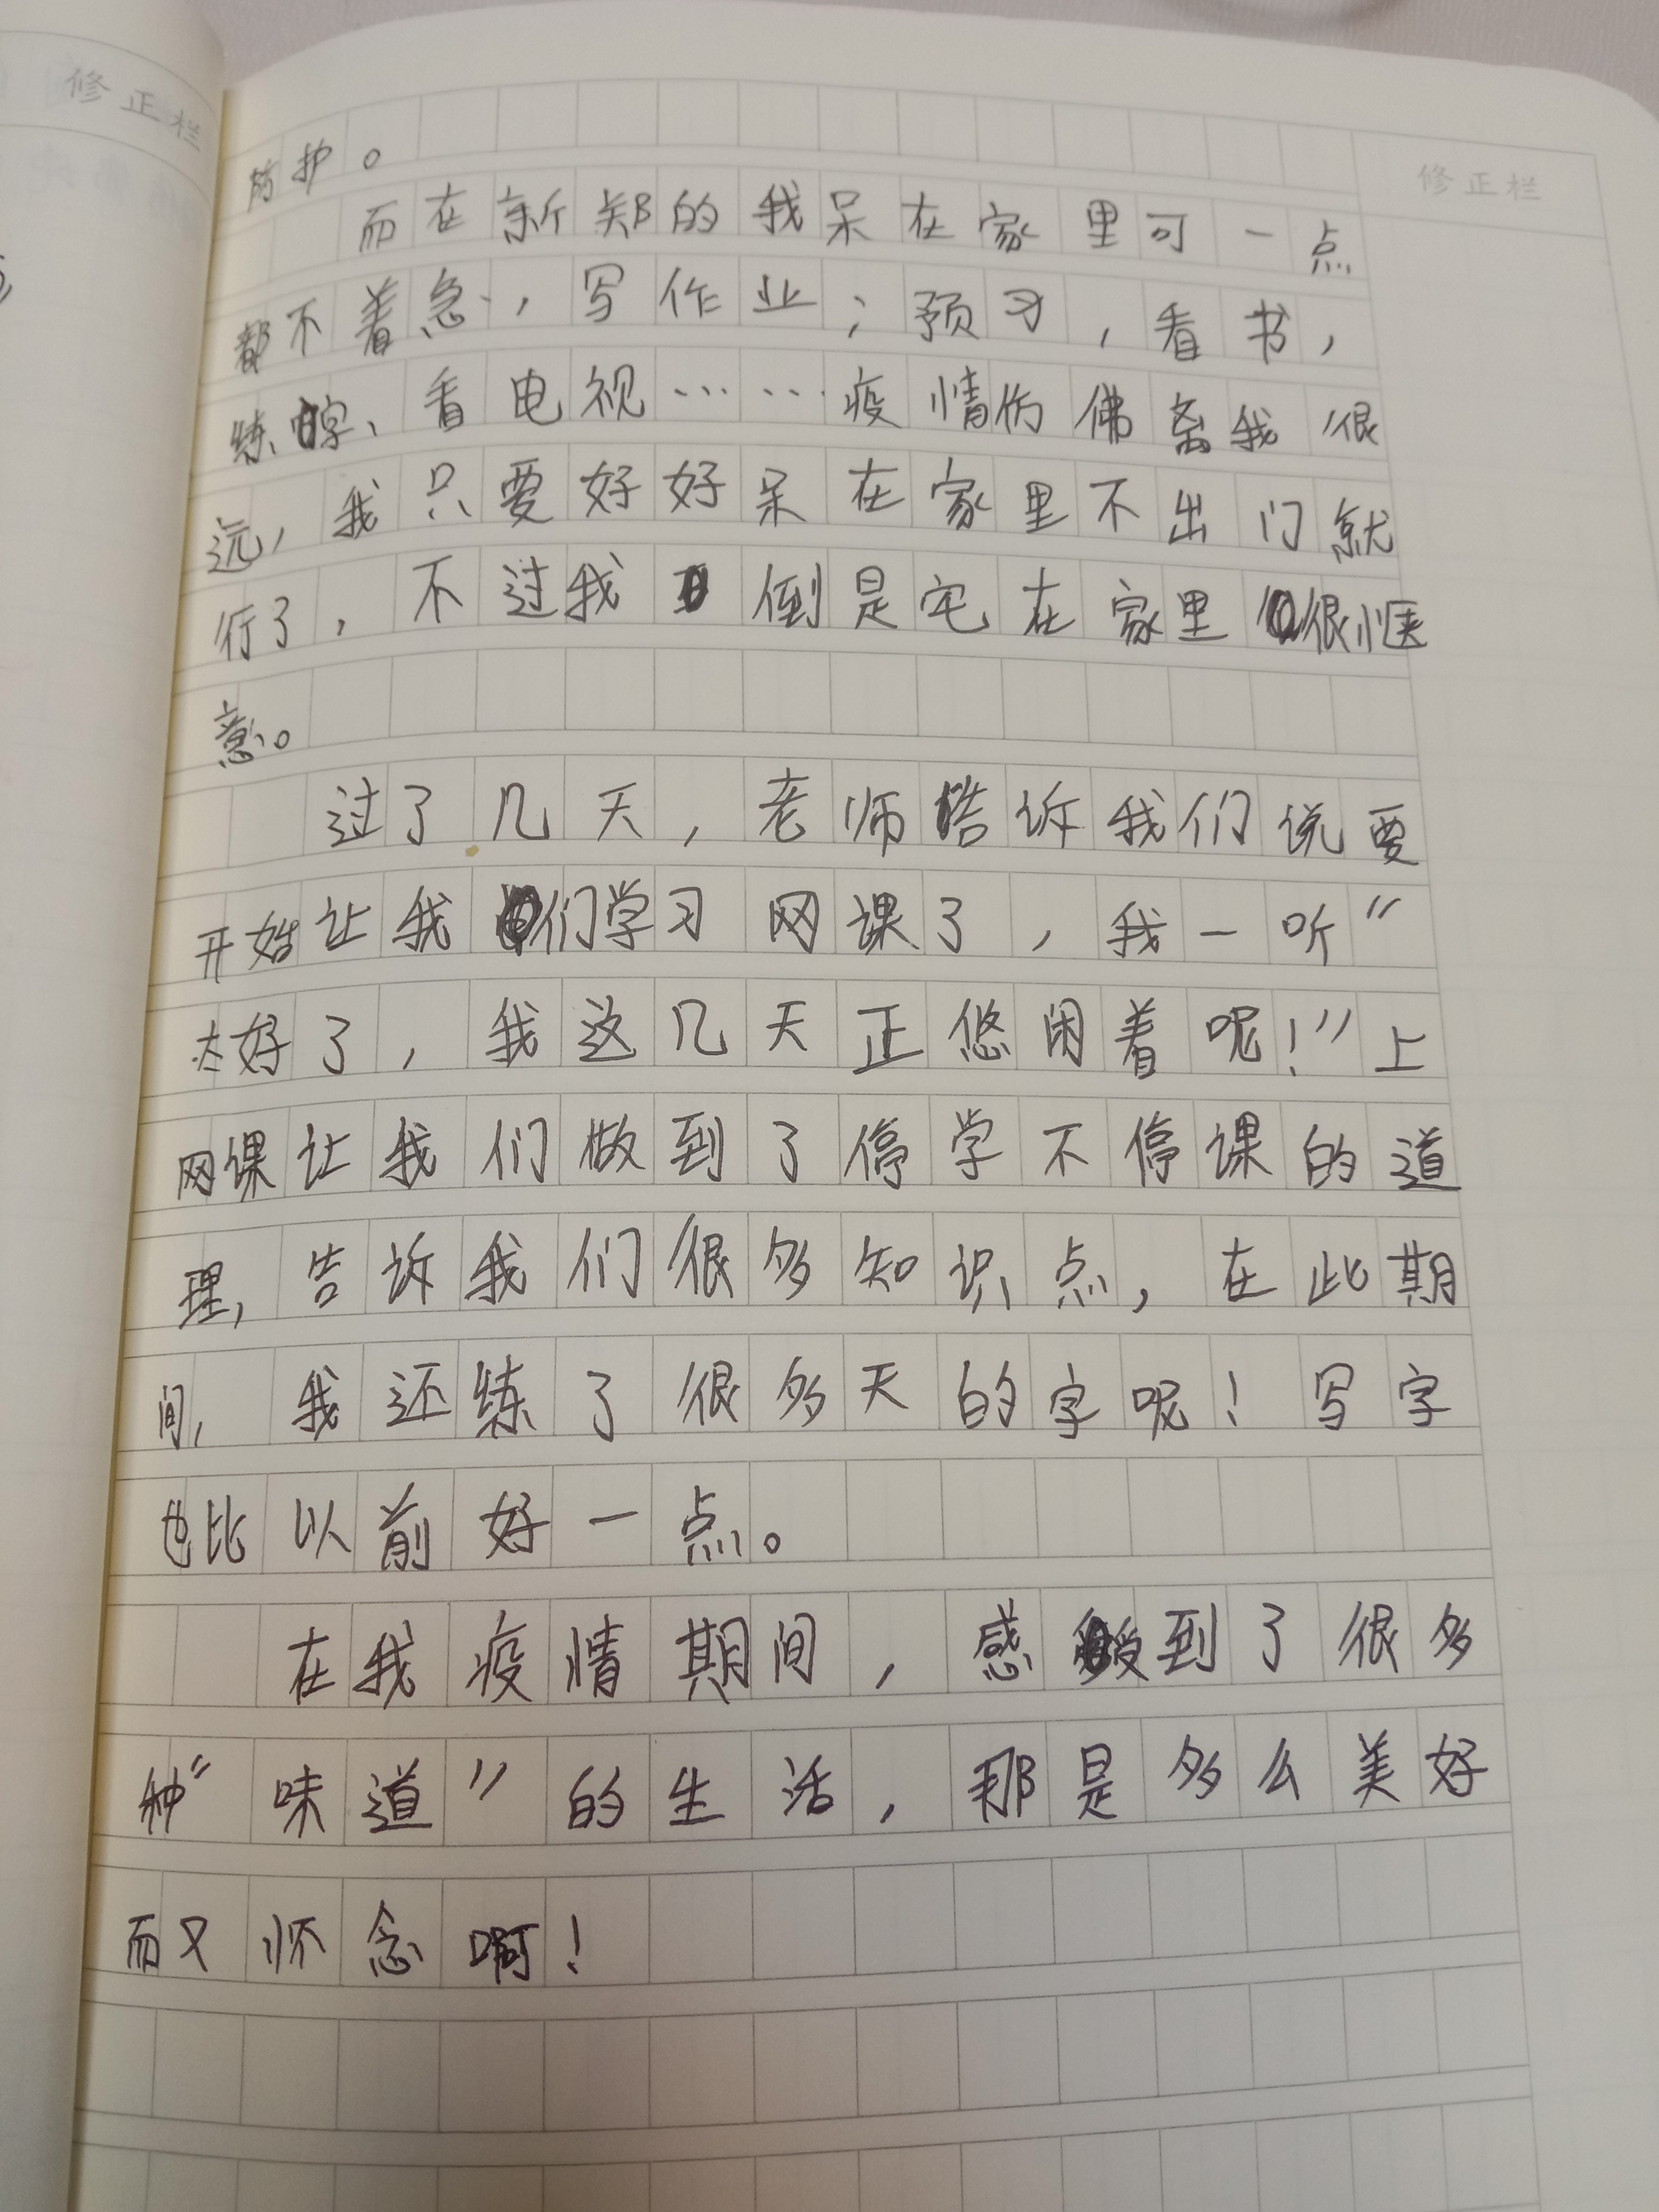 修正栏
修正栏
防护。
而在新郑的我呆在家里可一点
都不着急,写作业;预习,看书,
练字、看电视……疫情仿佛离我很
远,我只要好好呆在家里不出门就
行了,不过我倒是宅在家里很惬
意。
过了几天,老师告诉我们说要
开始让我们学习网课了,我一听“
太好了,我这几天正悠闲着呢!”上
网课让我们做到了停学不停课的道
理,告诉我们很多知识点,在此期
间,我还练了很多天的字呢!写字
也比以前好一点。
在我疫情期间,感受到了很多
种“味道”的生活,那是多么美好
而又怀念啊!